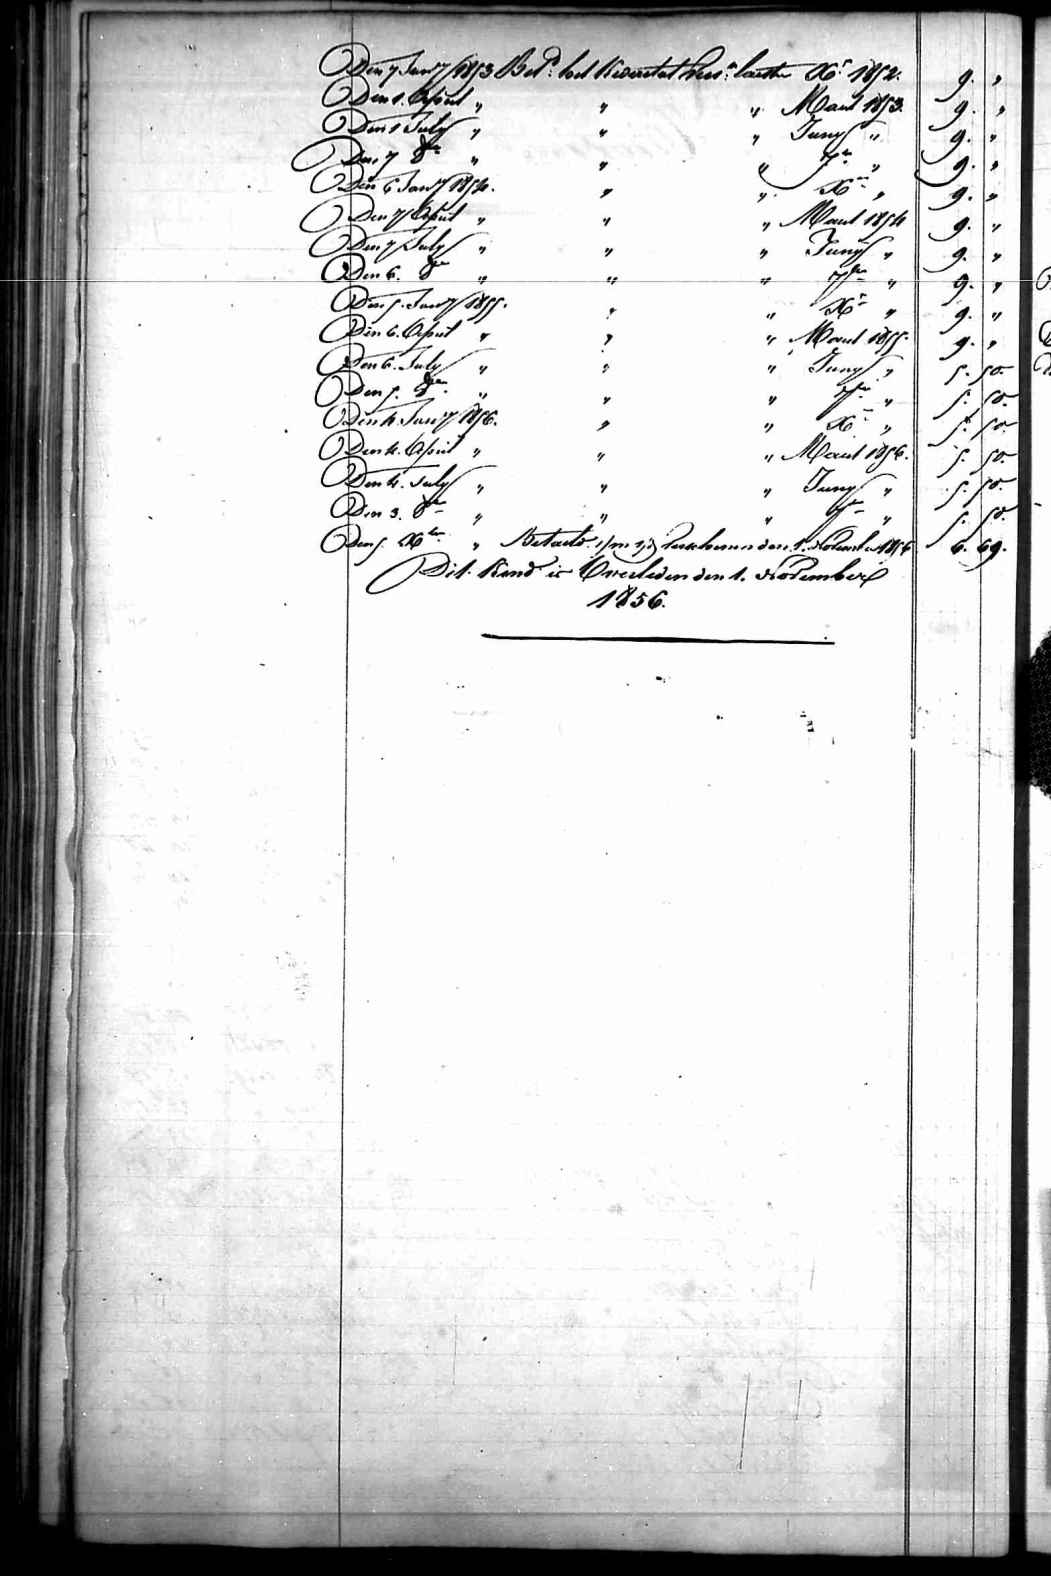 Den 7 Janry 1853 Bet.d het Kwartal ulto Xr 1852. 9. "
Den 1. April " " " Maart 1853. 9. "
Den 1 July " " " Juny " 9. "
Den 7 8br " " " 7br " 9. "
Den 6 Janry 1854. " " Xr " 9. "
Den 7 April " " " Maart 1854 9. "
Den 7 July " " " Juny " 9. "
Den 6. 8br " " " 7br " 9. "
Den 5. Janry 1855. " " Xr " 9. "
Den 6. April " " " Maart 1855. 9. "
Den 6. July " " " Juny " 5. 50.
Den 5. 8br " " " 7br " 5. 50.
Den 4. Janry 1856. " " Xr " 5. 50.
Den 4. April " " " Maart 1856. 5. 50.
Den 4. July " " " Juny " 5. 50.
Den 3. 8br " " " 7br " 5. 50.
Den 5. Xbr " Betaald den 1. November 1856 6. 69.
Dit Kind is Overleden den 1. November
1856.